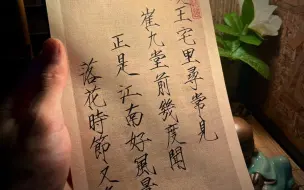 王宅里尋常見
崔九堂前幾度聞
正是江南好風景
落花時節又